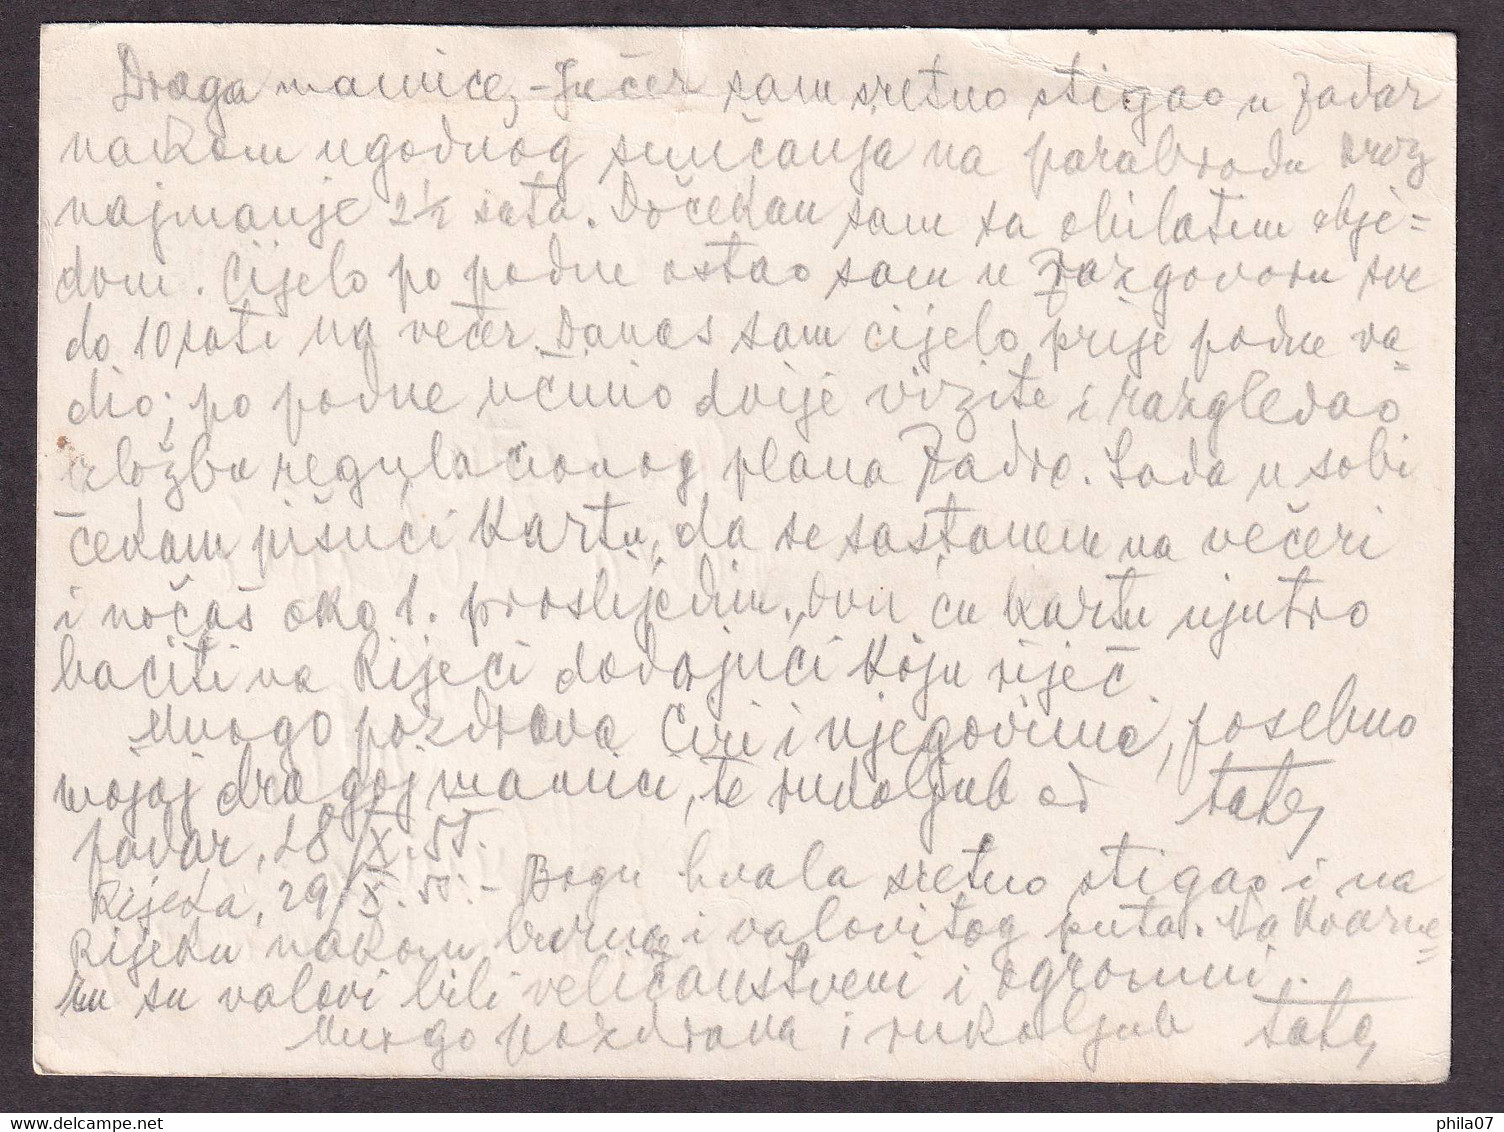 Draga mamice, - Jučer sam sretno stigao u Zadar
nakom ugodnog sunčanja na parabrodu kroz
najmanje 2½ sata. Dočekan sam sa obilatim obje=
dom. Cijelo po podne ostao sam u razgovoru sve
do 10 sati na večer. Danas sam cijelo prije podne va-
dio; po podne učinio dvije vizite i razgledao
izložbu regulacionog plana Zadra. Sada u sobi
čekam pišući kartu, da se sastanem na večeri
i noćas oko 1. proslijedim. Ovu ću kartu ujutro
baciti na Rijeci dodajući koju riječ.
Mnogo pozdrava Ćiri i njegovima, posebno
mojoj dragoj mamici, te rukoljub od tate,
Zadar, 28/X.55.
Rijeka, 29/X.55. - Bogu hvala sretno stigao i na
Rijeku nakom burnog i valovitog puta. Na Kvarne=
ru su valovi bili veličanstveni i ogromni.
Mnogo pozdrava i rukoljub tate,
phila07